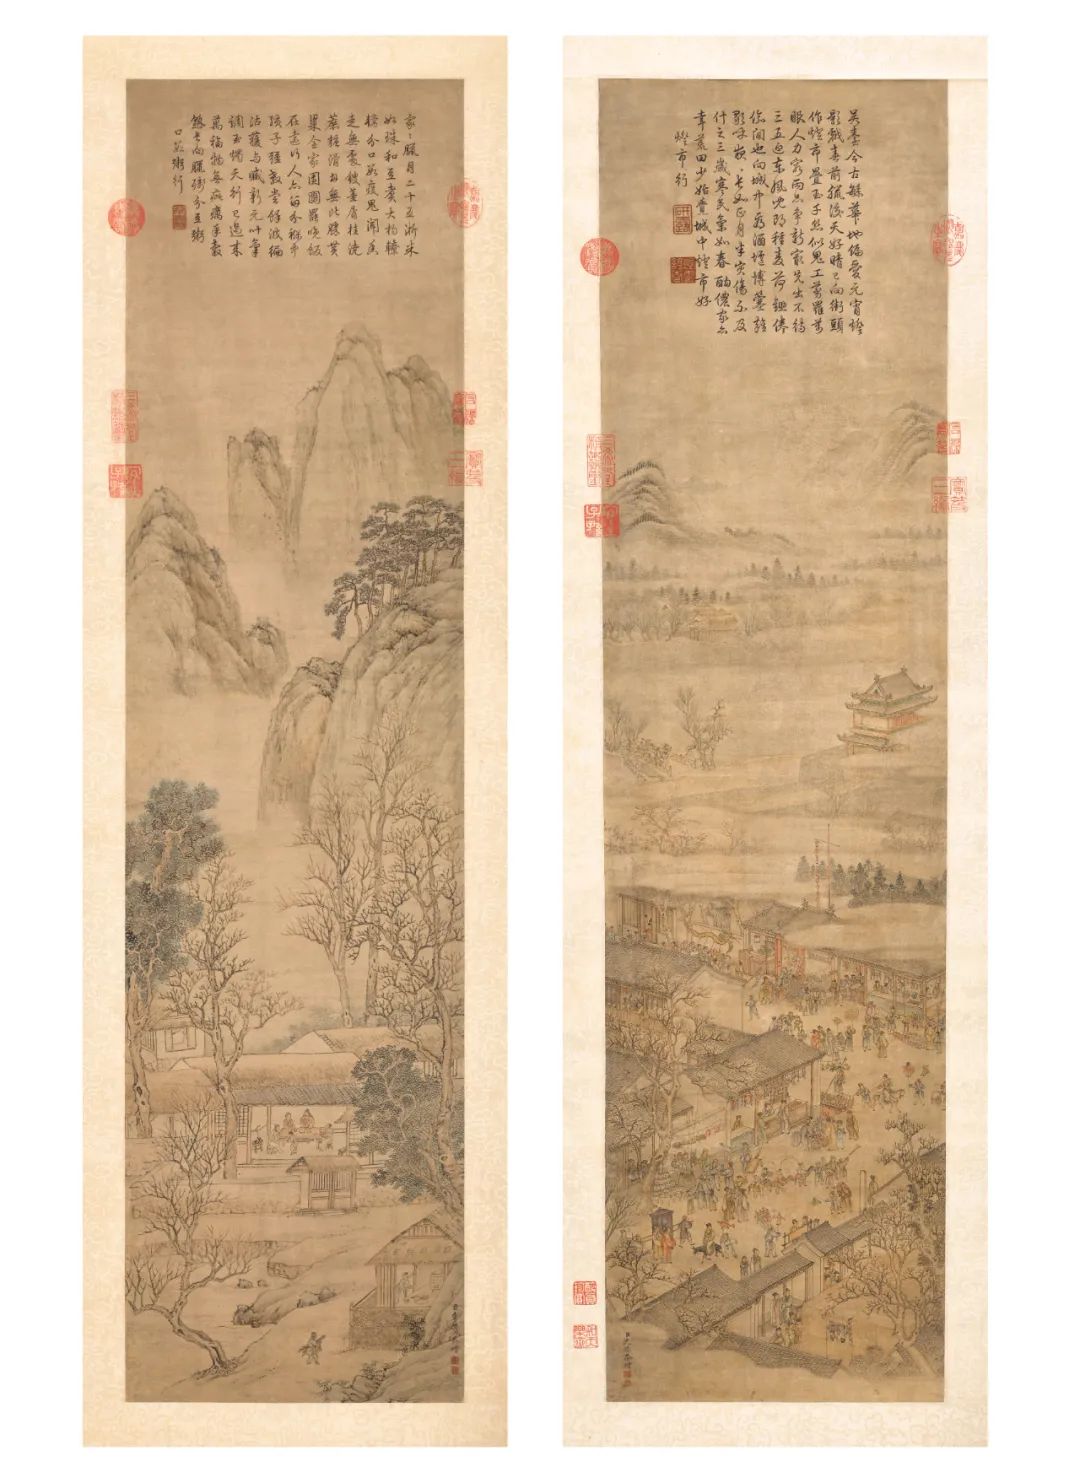 家〻臘月二十五淅米
如珠和豆煮大杓轑
鐺分口數疫鬼聞香
走無處鏤薑屑桂澆
蔗糖滑甘無比勝黃
粱全家團圞罷晚飯
在遠行人亦留分褓中
孩子強教嘗餘波徧
沾獲與臧新元叶氣
調玉燭天行已過來
萬福物無疵癘年穀
熟長向臘殘分豆粥
口數粥行
吳臺今古繁華地偏愛元宵燈
影戲春前臘後天好晴已向街頭
作燈市疊玉千絲似鬼工剪羅萬
眼人力窮兩品爭新最先出不待
三五迎東風兒郎種麥荷鋤倦
偷閒也向城中看酒壚博簺雜
歌呼夜〻長如正月半災傷不及
什之三歲寒民氣如春酣儂家亦
幸荒田少始覺城中燈市好
燈市行